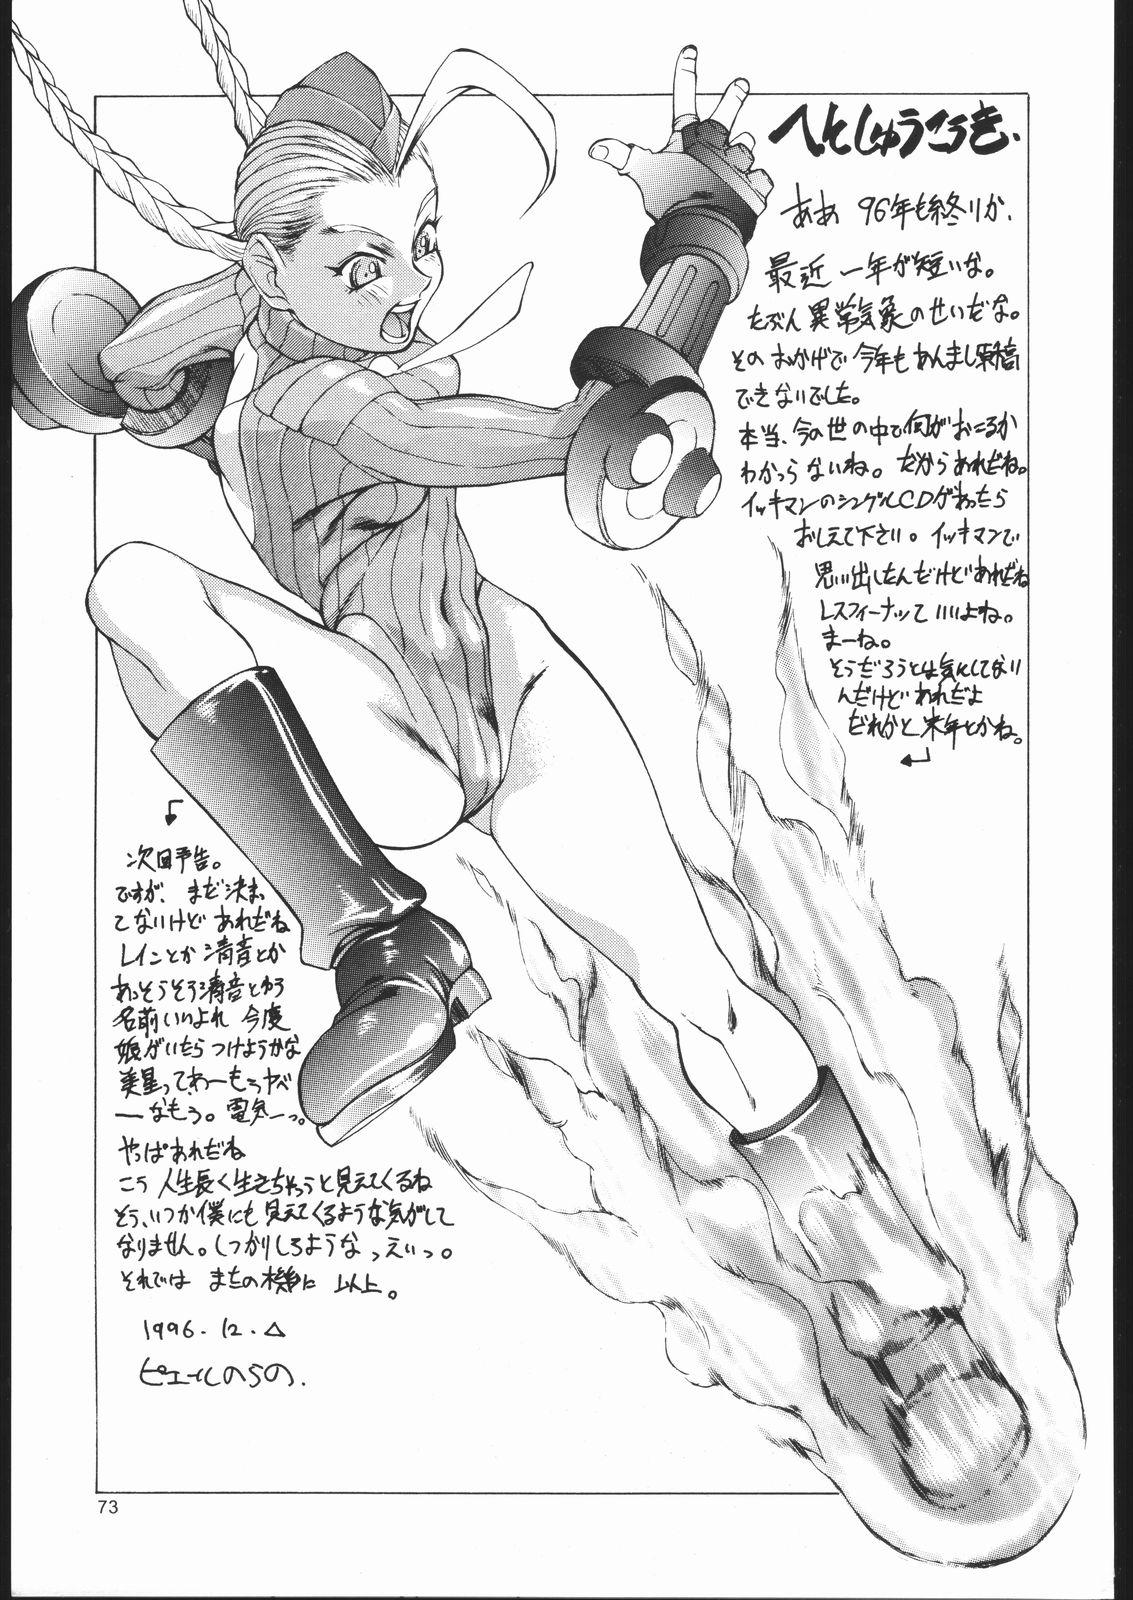 へたしゅうこうき、
ああ 96年も終りか、
最近 一年が短いな。
たぶん異常気象のせいだな。
そのおかげで今年もあんまし原稿
できないでした。
本当、今の世の中で何がおこるか
わかっらないね。だからあれだね。
イッキマンのシングルCDがあったら
おしえて下さい。イッキマンで
思い出したんだけどあれだね
レスフィーナッて いいよね。
まーね。
そうだろうとは気にしてない
んだけど あれだよ
だれかと 来年とかね。
次回予告。
ですが、まだ決まっ
てないけど あれだね
レインとか 清音とか
あっそうそう清音とゆう
名前いいよね 今度
娘がいたら つけようかな
美星ってわーもうヤベ
ーなもう。電気ーっ。
やっぱあれだね
こう 人生長く生きちゃうと見えてくるね
そう、いつか僕にも見えてくるような気がして
なりません。しっかりしろようなっえいっ。
それでは またの機会に 以上。
1996.12.△
ピエールのらの、
73